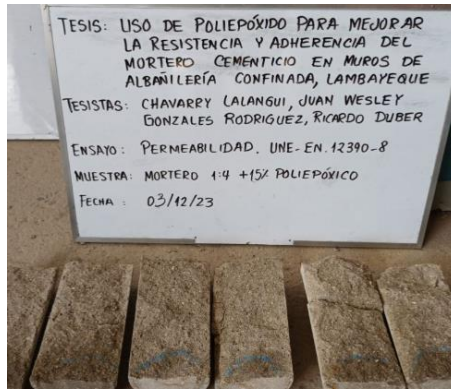 TESIS: USO DE POLIEPÓXIDO PARA MEJORAR
LA RESISTENCIA Y ADHERENCIA DEL
MORTERO CEMENTICIO EN MUROS DE
ALBAÑILERÍA CONFINADA, LAMBAYEQUE
TESISTAS: CHAVARRY LALANGUI, JUAN WESLEY
GONZALES RODRIGUEZ, RICARDO DUBER
ENSAYO: PERMEABILIDAD. UNE-EN.12390-8
MUESTRA: MORTERO 1:4 +15% POLIEPÓXICO
FECHA: 03/12/23